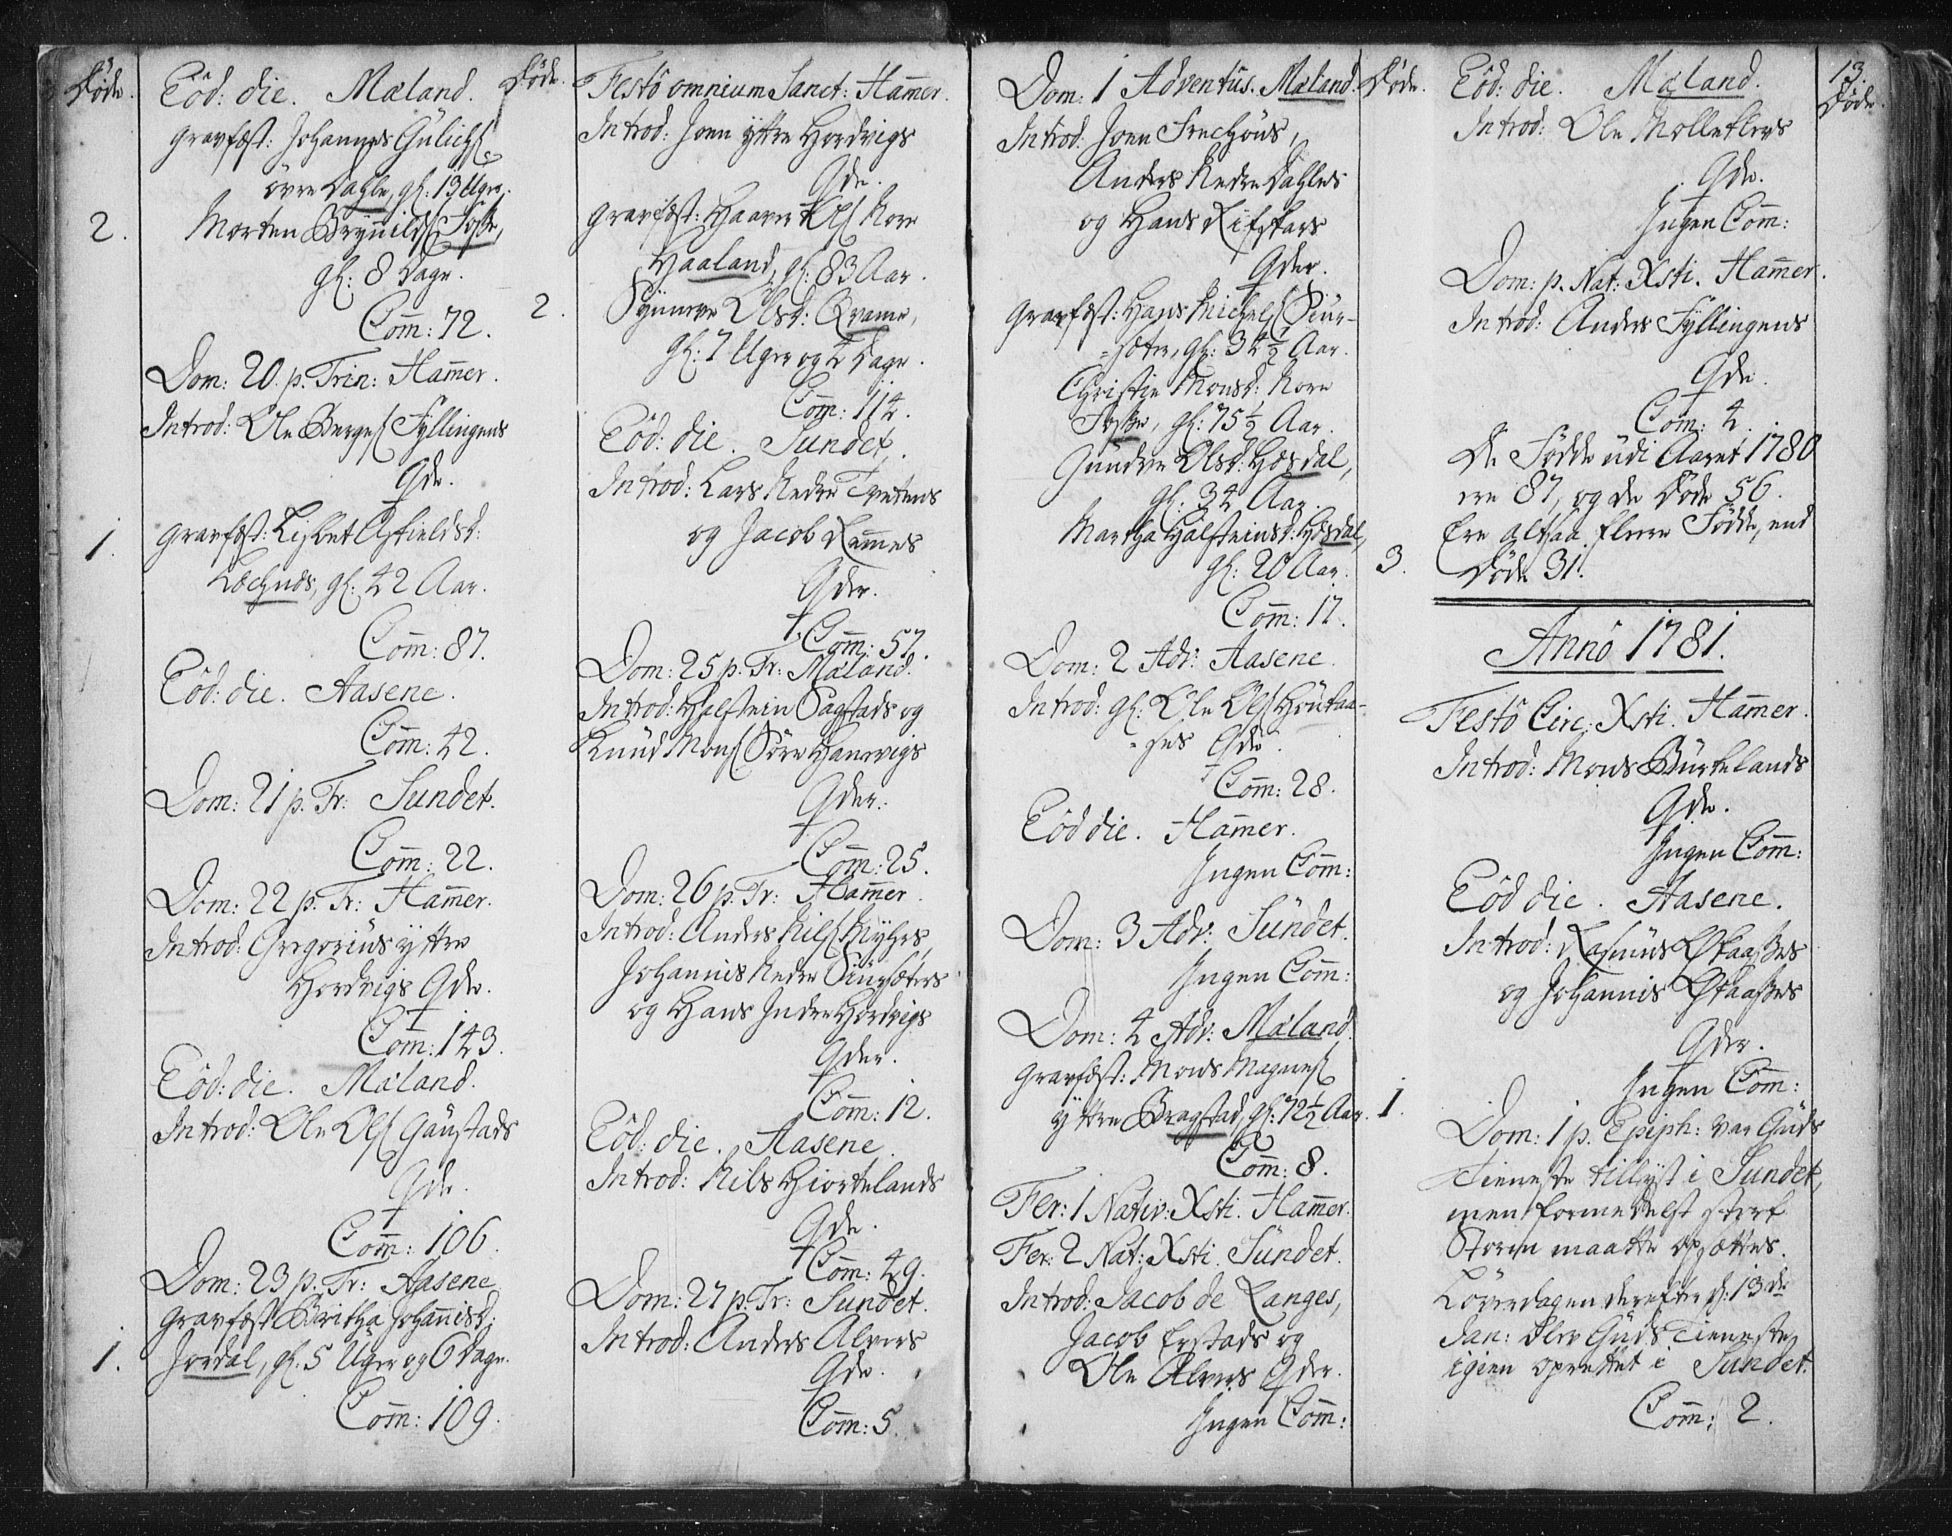 Døde.
Eod: die. Mæland.
Gravfæst: Johannes Gulichs.
øvre Dahle, gl: 13 Uger.
2. Morten Brynilds. Foske,
gl: 8 Dage.
Com̄: 72.
Dom: 20. p. Trin: Ham̄er.
Introd: Ole Berges. Fyllingens
Qde.
1. Gravfæst: Lisbet Asfieldsd:
gl: 42 Aar.
Com̄: 87.
Eod: die. Aasene.
Com̄: 42.
Dom: 21 p. Tr: Sundet.
Com̄: 22.
Dom: 22 p. Tr: Ham̄er.
Introd: Gregorius yttre
Hordvigs Qde.
Com̄: 143.
Eod: die. Mæland.
Introd: Ole Ols. Gaustads
Qde.
Com̄: 106.
Dom: 23 p. Tr: Aasene
Gravfæst Britha Johan̄isd:
1. Jordal, gl. 5 Uger og 6 Dage.
Com̄: 109.
Døde.
Festo omnium Sanct: Ham̄er.
Introd: Joen yttre Hordvigs
Qde.
Gravfæst: Haaver Ols. Nore
Haaland, gl: 83 Aar.
2. Synneve Olsd: Qvam̄e,
gl: 7 Uger og 4 Dage.
Com̄: 114.
Eod: die. Sundet.
Introd: Lars Nedre Tvetens
og Jacob Rem̄es
Qder.
Com̄: 57.
Dom: 25 p. Tr: Mæland.
Introd: Halstein Sagstads og
Knud Mons. Søre Hanevigs
Qder.
Com̄: 25.
Dom: 26 p. Tr: Ham̄er.
Introd: Anders Nils. Myhrs,
Johannis Nedre Siursæters
og Hans Indre Hordvigs
Qder.
Com̄: 12.
Eod: die. Aasene.
Introd: Nils Hiortelands
Qde.
Com̄: 49.
Dom: 27 p. Tr: Sundet.
Introd: Anders Alvers
Qde.
Com̄: 5.
Dom: 1 Adventus. Mæland.
Introd: Joen Frechous,
Anders Nedre Dahles
og Hans Rifskars
Qder.
Gravfæst: Hans Michels. Siur-
=sæter, gl: 34 1/2 Aar.
Christie Monsd: Nore
Foske, gl: 75 1/2 Aar.
Gundve Olsd: Hosdal,
gl: 34 Aar.
Martha Halsteinsd: Hosdal,
gl: 20 Aar.
Com̄: 17.
Dom: 2 Adv: Aasene.
Introd: gl: Ole Ols. Houkaa-
=ses Qde.
Com̄: 28.
Eod die. Ham̄er.
Ingen Com̄:
Dom: 3 Adv: Sundet.
Ingen Com̄:
Dom: 4 Adv: Mæland.
Gravfæst: Mons Magnes.
yttre Bragstad, gl: 72 1/2 Aar.
Com̄: 8.
Fer: 1 Nativ: Xsti. Ham̄er.
Fer: 2 Nat: Xsti. Sundet.
Introd: Jacob de Langes,
Jacob Erstads og
Ole Alvers Qder.
Ingen Com̄:
Døde.
3.
1.
Eod: die. Mæland.
Introd: Ole Molleklevs
Qde.
Ingen Com̄:
Dom: p. Nat: Xsti. Ham̄er.
Introd: Anders Fyllingens
Qde.
Com̄: 4.
De Fødde udi Aaret 1780
ere 87, og de Døde 56.
Ere altsaa flere Fødde, end
Døde 31.
Anno 1781.
Festo Circ: Xsti. Ham̄er.
Introd: Mons Burkelands
Qde.
Ingen Com̄:
Eod die. Aasene.
Introd: Rasmus Okaasses
og Johannis Okaasses
Qder.
Ingen Com̄:
Dom: 1 p. Epiph: var Guds
Tieneste tillyst i Sundet,
men formedelst sterk
Storm maatte opsættes.
Løverdagen derefter d: 13de
Jan: blev Guds Tieneste
igien oprettet i Sundet.
Com̄: 2.
13.
Døde.